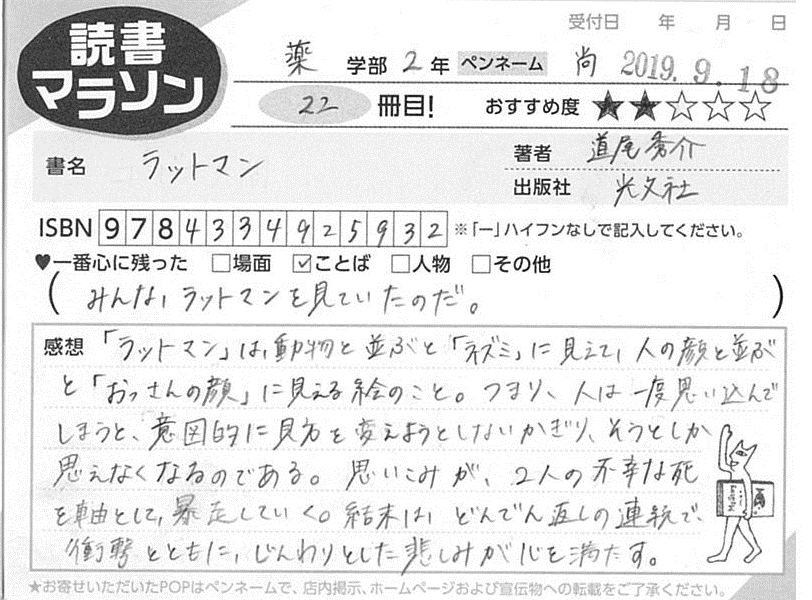 読書
マラソン
受付日 年 月 日
薬 学部 2 年 ペンネーム 尚 2019.9.18
22 冊目! おすすめ度 ★★☆☆☆
書名 ラットマン
著者 道尾秀介
出版社 光文社
ISBN 9784334925932 ※「ー」ハイフンなしで記入してください。
♥一番心に残った □場面 ☑ことば □人物 □その他
(みんな、ラットマンを見ていたのだ。)
感想 「ラットマン」は、動物と並ぶと「ネズミ」に見えて、人の顔と並ぶ
と「おっさんの顔」に見える絵のこと。つまり、人は一度思い込んで
しまうと、意図的に見方を変えようとしないかぎり、そうとしか
思えなくなるのである。思いこみが、2人の不幸な死
を軸として、暴走していく。結末は、どんでん返しの連続で、
衝撃とともに、じんわりとした悲しみが心を満たす。
★お寄せいただいたPOPはペンネームで、店内掲示、ホームページおよび宣伝物への転載をご了承ください。